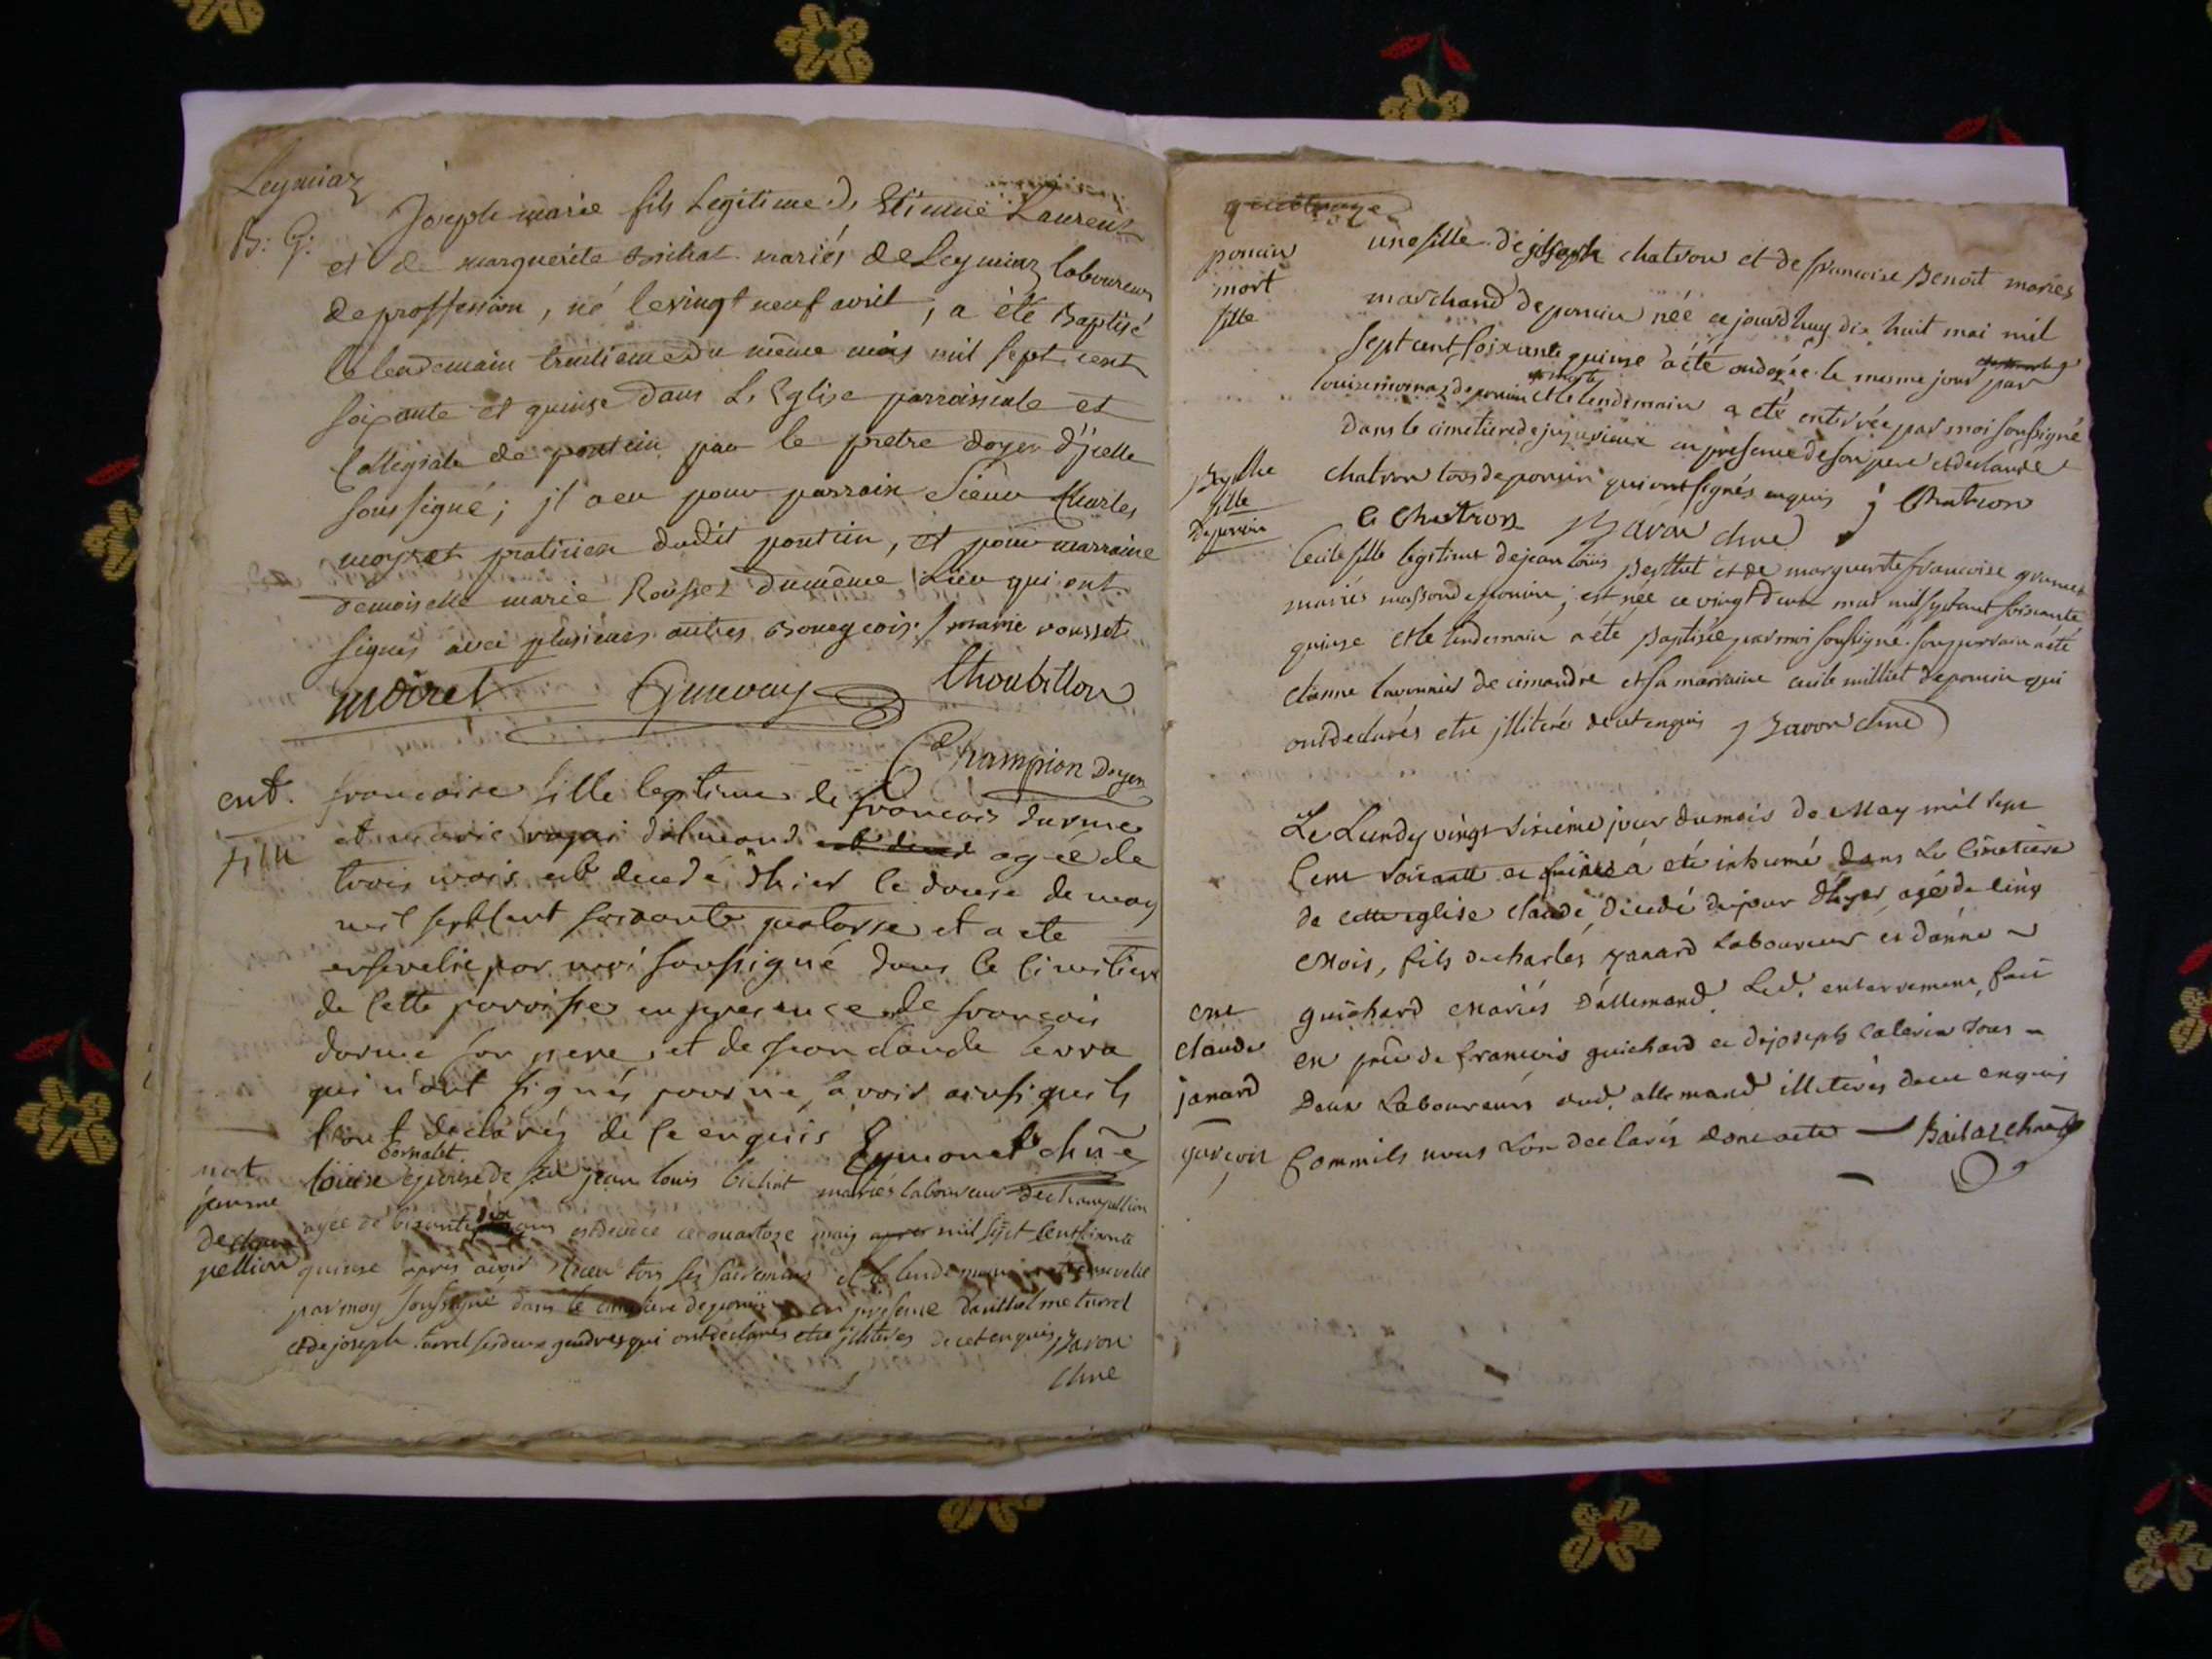 Leymiaz
B: G: Joseph marie fils Legitime de Etienne Laurent
et de marguerite Bichat mariés de Leymiaz laboureurs
de proffession, né le vingt neuf avril, a été Baptisé
le lendemain trentieme du même mois mil sept cent
soixante et quinze dans L'Eglise parroissiale et
Collegiale de pontcin par le pretre Doyen d'jcelle
soussigné; jl a eu pour parrain Sieur Charles
moyret praticien dudit pontcin, et pour marraine
Demoiselle marie Rousset du même Lieu qui ont
signés avec plusieurs autres Bourgeois. / marie rousset
moiret Thoubillon
Champion Doyen
ent. francoise fille legitime de francois durme
fille et marie d'almand agée de
trois mois est decedé d'hier le douse de may
mil sept Cent soixante quatorse et a ete
ensevelie par moi soussigné dans le Cimetiere
de Cette parroisse en presence de francois
durme son pere et de jean claude terra
qui n'ont signés pour ne savoir ainsi quils
l'ont declarés de ce enquis Eymonet chñe
mort louise cornalet epouse de feu jean louis bichat mariés laboureur de champellion
femme agée de soixante dix ans est decedée ce quatorze may mil sept cent soixante
de cham
pellion quinse apres avoir reçu tous ses sacremens et le lendemain a été ensevelie
par moy soussigné dans le cimetiere de poncin en presence d'anthelme turrel
et de joseph turrel ses deux gendres qui ont declarés etre jlliterés de cet enquis Savon
chne
poncin une fille de joseph chatron et de francoise Benoit mariés
mort marchand de poncin née ce jourdhuy dix huit mai mil
fille sept cent soixante quinse a été ondoyée le meme jour par
louise de poncin et le lendemain a eté enterrée par moi soussigné
dans le cimetiere de jujurieux en presence de son pere et de claude
chatron tous de poncin qui ont signés enquis j Chatron
C Chatron Savon chne
Berthet
fille
de poncin
Cecile fille legitime de jean loüis Berthet et de marguerite francoise
mariés masson de poncin; est née ce vingt deux mai mil sept cent soixante
quinse et le lendemain a eté Baptisée par moi soussigné. son parrain a été
etienne de cimandre et sa marraine cecile milliet de poncin qui
ont declarés etre jlliterés de cet enquis j Savon chne
Le Lundy vingt sixieme jour du mois de May mil sept
Cent soixante et quinze a eté inhumé dans Le Cimetiere
de cette eglise claude decedé du jour d'hyer, agé de cinq
Mois, fils de charles janard Laboureur et d'anne
ent guichard Mariés D'allemand. Led. enterrement fait
claude en pñce de francois guichard et de joseph calarin tous
janard Deux Laboureurs dud. allemand illiterés de ce enquis
garcon Comm'ils nous L'on declarés dont acte